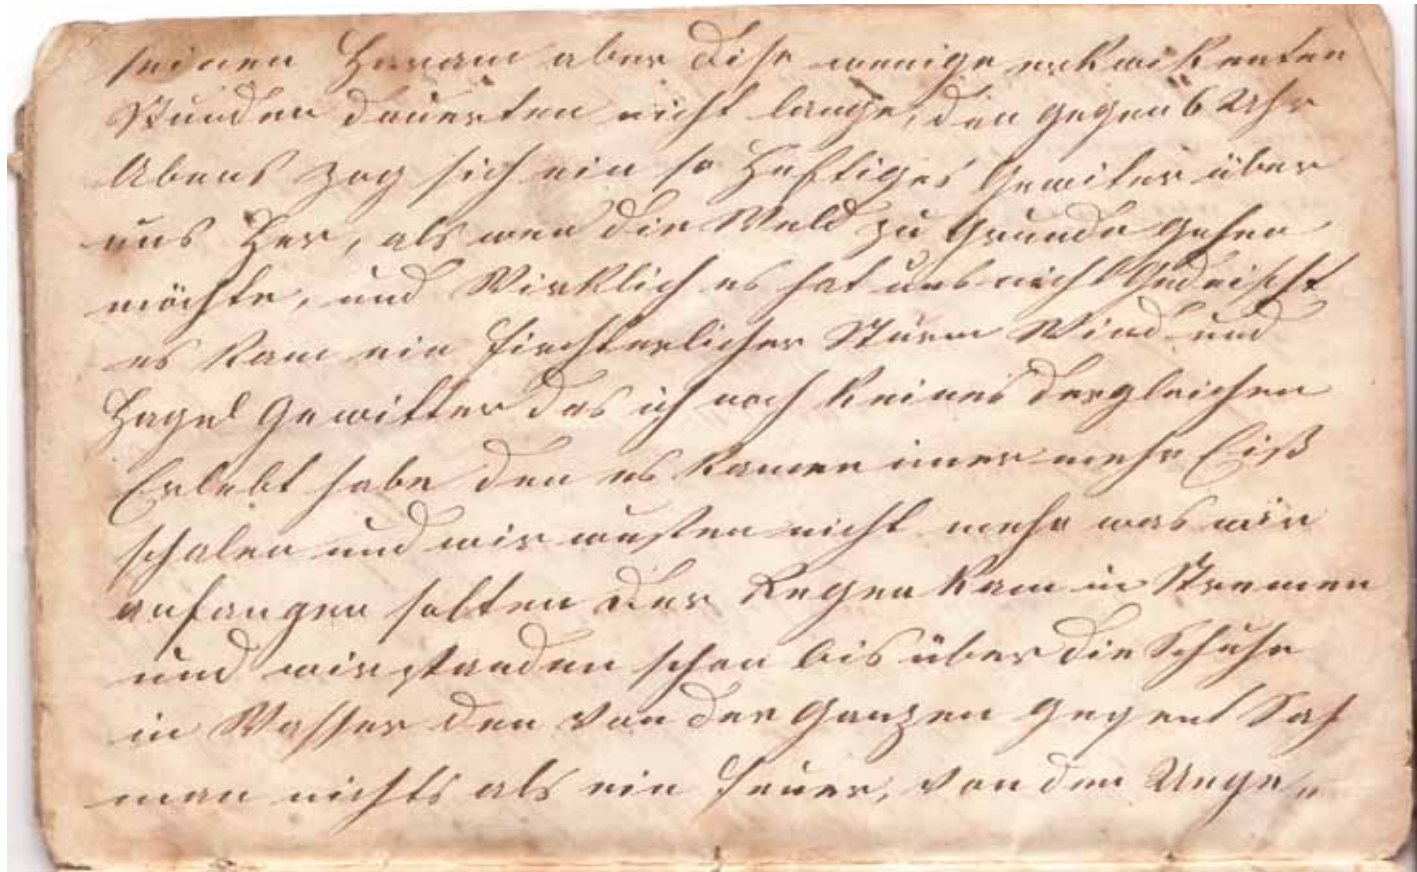 seinen Haram aber dise wenige erkwikenten
Stunden dauerten nicht lange, den gegen 6 Uhr
Abens zog sich ein so Heftiges Gewiter über
uns Her, als wen die Weld zu Grunde gehen
möchte, und Wirklich es hat uns nicht Gedeischt
es kam ein firchterlicher Sturm Wind und
Hagel Gewitter das ich noch keines dergleichen
Erlebt habe den es kamen imer mehr Eiß
schalen und wir wusten nicht mehr was wir
anfangen solten Der Regen kam in Stremen
und wir standen schon bis über die Schuhe
in Wasser den von der Ganzen Gegent Sah
man nichts als ein feuer, von den Unge„